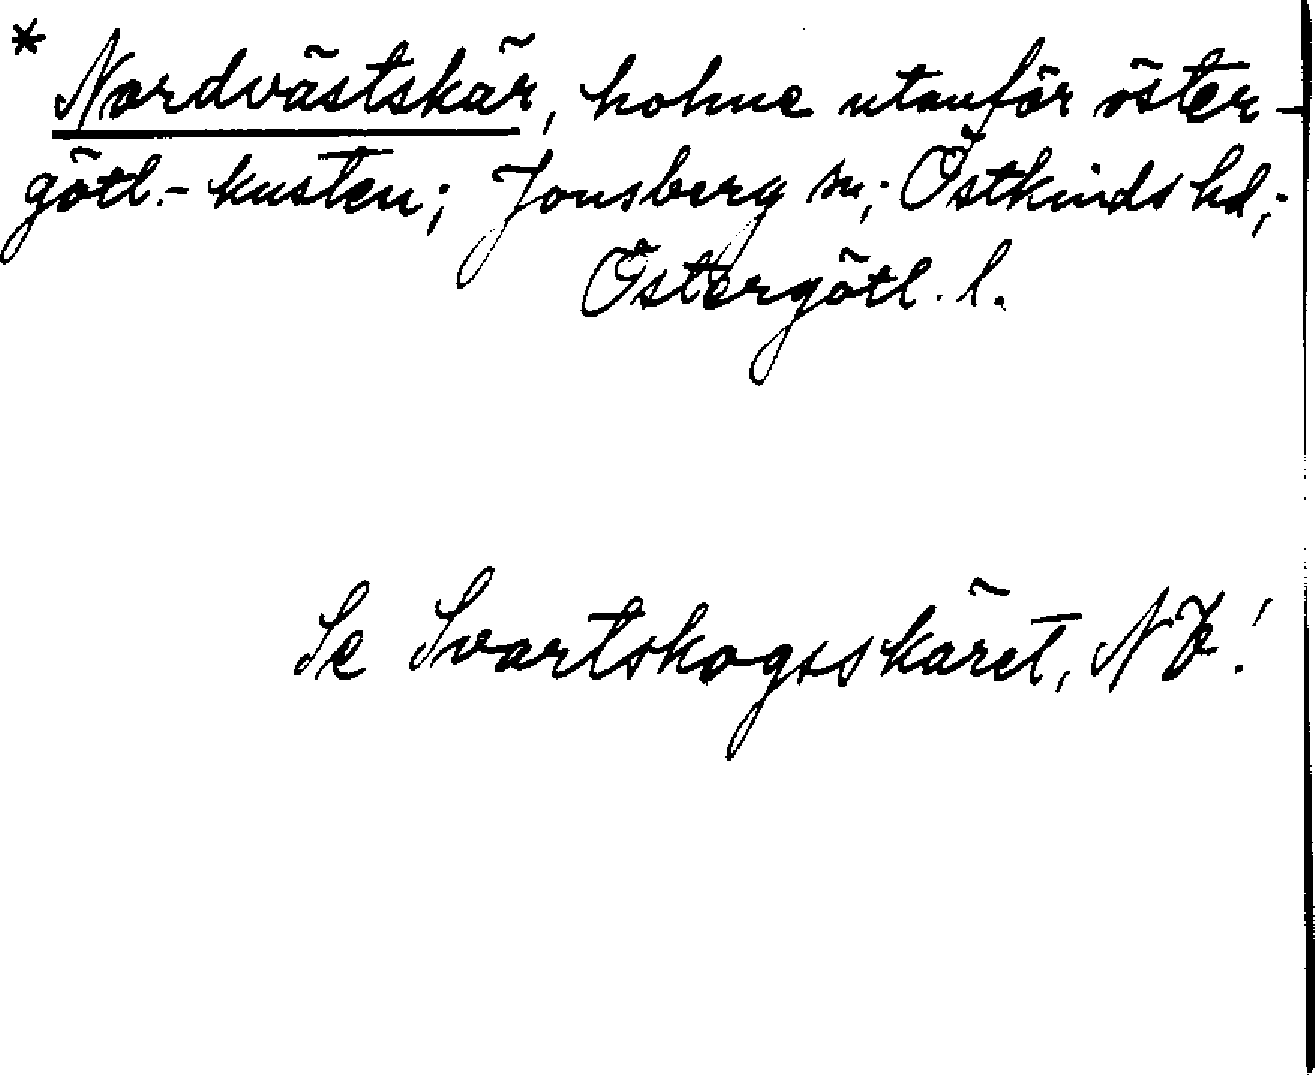 * Nordvästskär, holme utanför öster-
götl.-kusten; Jonsberg sn; Östkinds hd;
Östergötl. l.
Se Svartskogsskäret,